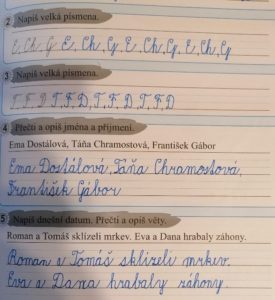 2 Napiš velká písmena.
E, Ch, G, E, Ch, G, E, Ch, G, E, Ch, G
3 Napiš velká písmena.
T, F, D T, F, D, T, F, D, T, F, D
4 Přečti a opiš jména a příjmení.
Ema Dostálová, Táňa Chramostová, František Gábor
Ema Dostálová, Táňa Chramostová,
František Gábor
5 Napiš dnešní datum. Přečti a opiš věty.
Roman a Tomáš sklízeli mrkev. Eva a Dana hrabaly záhony.
Roman a Tomáš sklízeli mrkev.
Eva a Dana hrabaly záhony.